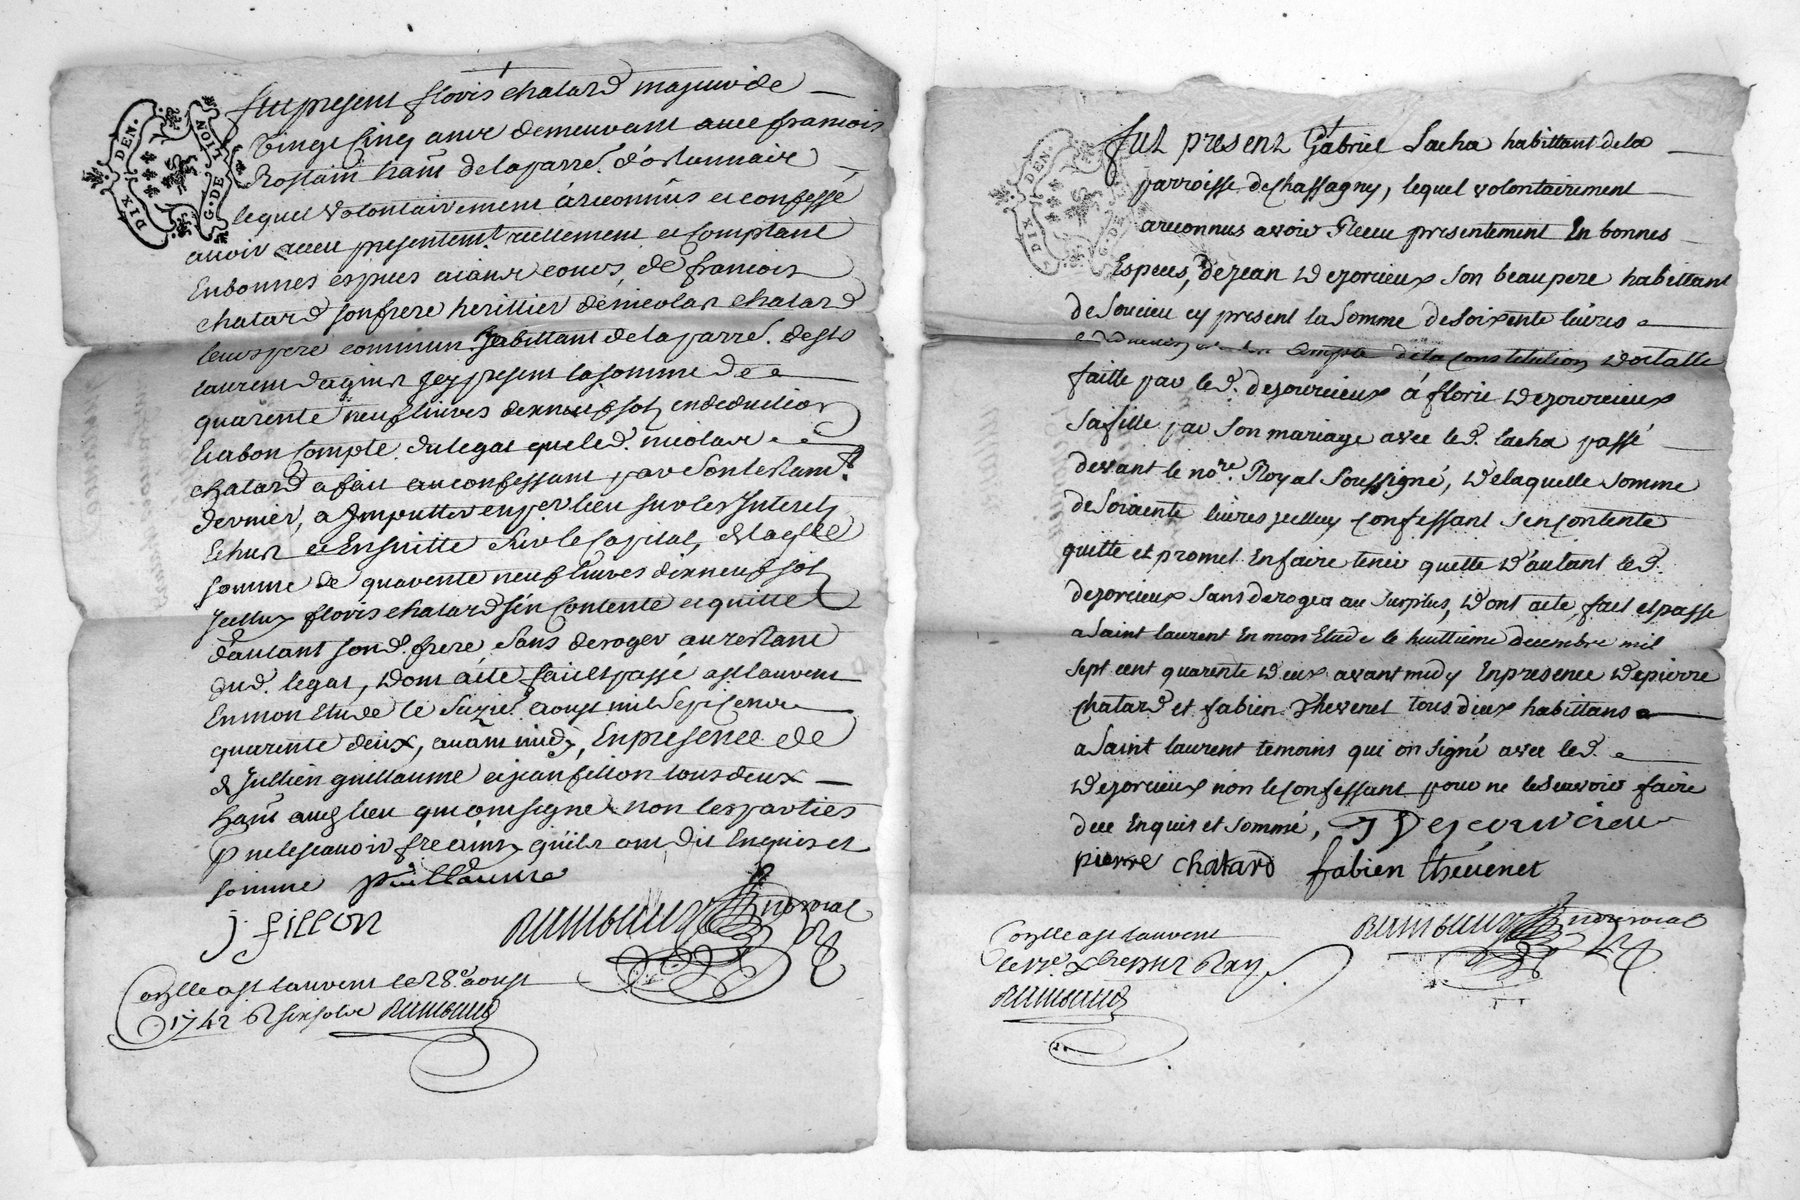 DIX DEN.
G. DE LION
fut present floris chatard majeur de
vingt cinq ans demeurant avec francois
Rostain hant de la parre. d'orliennaire
lequel volontairement a reconnus et confessé
avoir receu presentemt. reellement et comptant
En bonnes espèces aiant cours, de francois
chatard son frere herittier de nicolas chatard
leur pere commun habittant de la parre. de st
laurent dagini icy present la somme de
quarente neuf livres dix neuf sols en deduction
Et a bon Compte du legat que led. nicolas
chatard a fait au confessant par son testamt.
dernier, a Imputter en per lieu sur les Interets
Echus et Ensuitte sur le Capital, de laqlle
somme de quarente neuf livres dix neuf sols
Icelluy floris chatard s'en Contente et quitte
d'autant sond. frere sans deroger au restant
dud. legat, dont acte fait et passé a st laurent
En mon Etude le aoust mil sept cent
quarente deux, avant midy, En presence de
Jullien guillaume et jean fillion tous deux
hants aud. lieu qui ont signé non les parties
p ne le scavoir faire ainsy qu'ils ont dit Enquis et
sommé Guillaume
j. fillon
no royal
Collé a st laurent le 28e. aoust
1742 R six sols
DIX DEN.
G. DE
fut present Gabriel Lacha habittant de la
parroisse de chassagny, lequel volontairement
a reconnus avoir Receu presentement En bonnes
Especes, de jean dezorcieux son beau pere habittant
de Soucieu cy present la Somme de soixente livres
compte de la constitution dotalle
faitte par led. dezourcieux á florie dezourcieux
sa fille par son mariage avec led. lacha passé
devant le nore. Royal Soussigné, de laquelle somme
de Soixente livres icelluy confessant s'en contente
quitte et promet En faire tenir quitte d'autant led.
dezorcieux sans deroger au surplus, dont acte, fait et passé
a Saint laurent En mon Etude le huittieme decembre mil
sept cent quarente deux avant midy En presence de pierre
chatard et fabien Thevenet tous deux habittans
a Saint laurent temoins qui on signé avec led.
dezorcieux non le confessant pour ne le scavoir faire
Enquis et sommé, J Descourcieu
pierre chatard fabien thévenet
no royal
Collé a st laurent